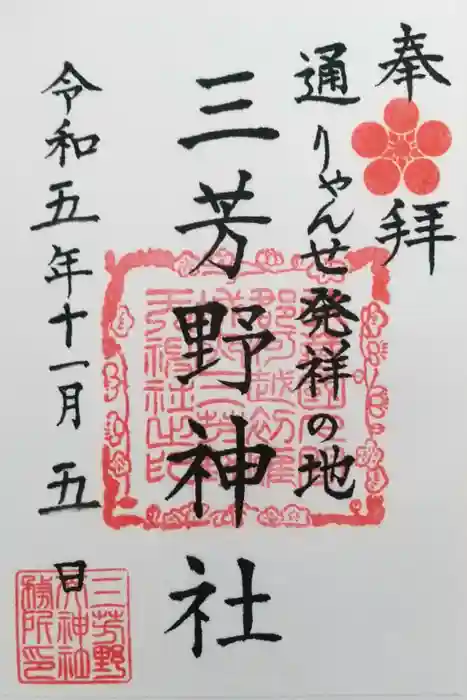 奉拝
通りゃんせ発祥の地
三芳野神社
令和五年十一月五日
三芳野
神社